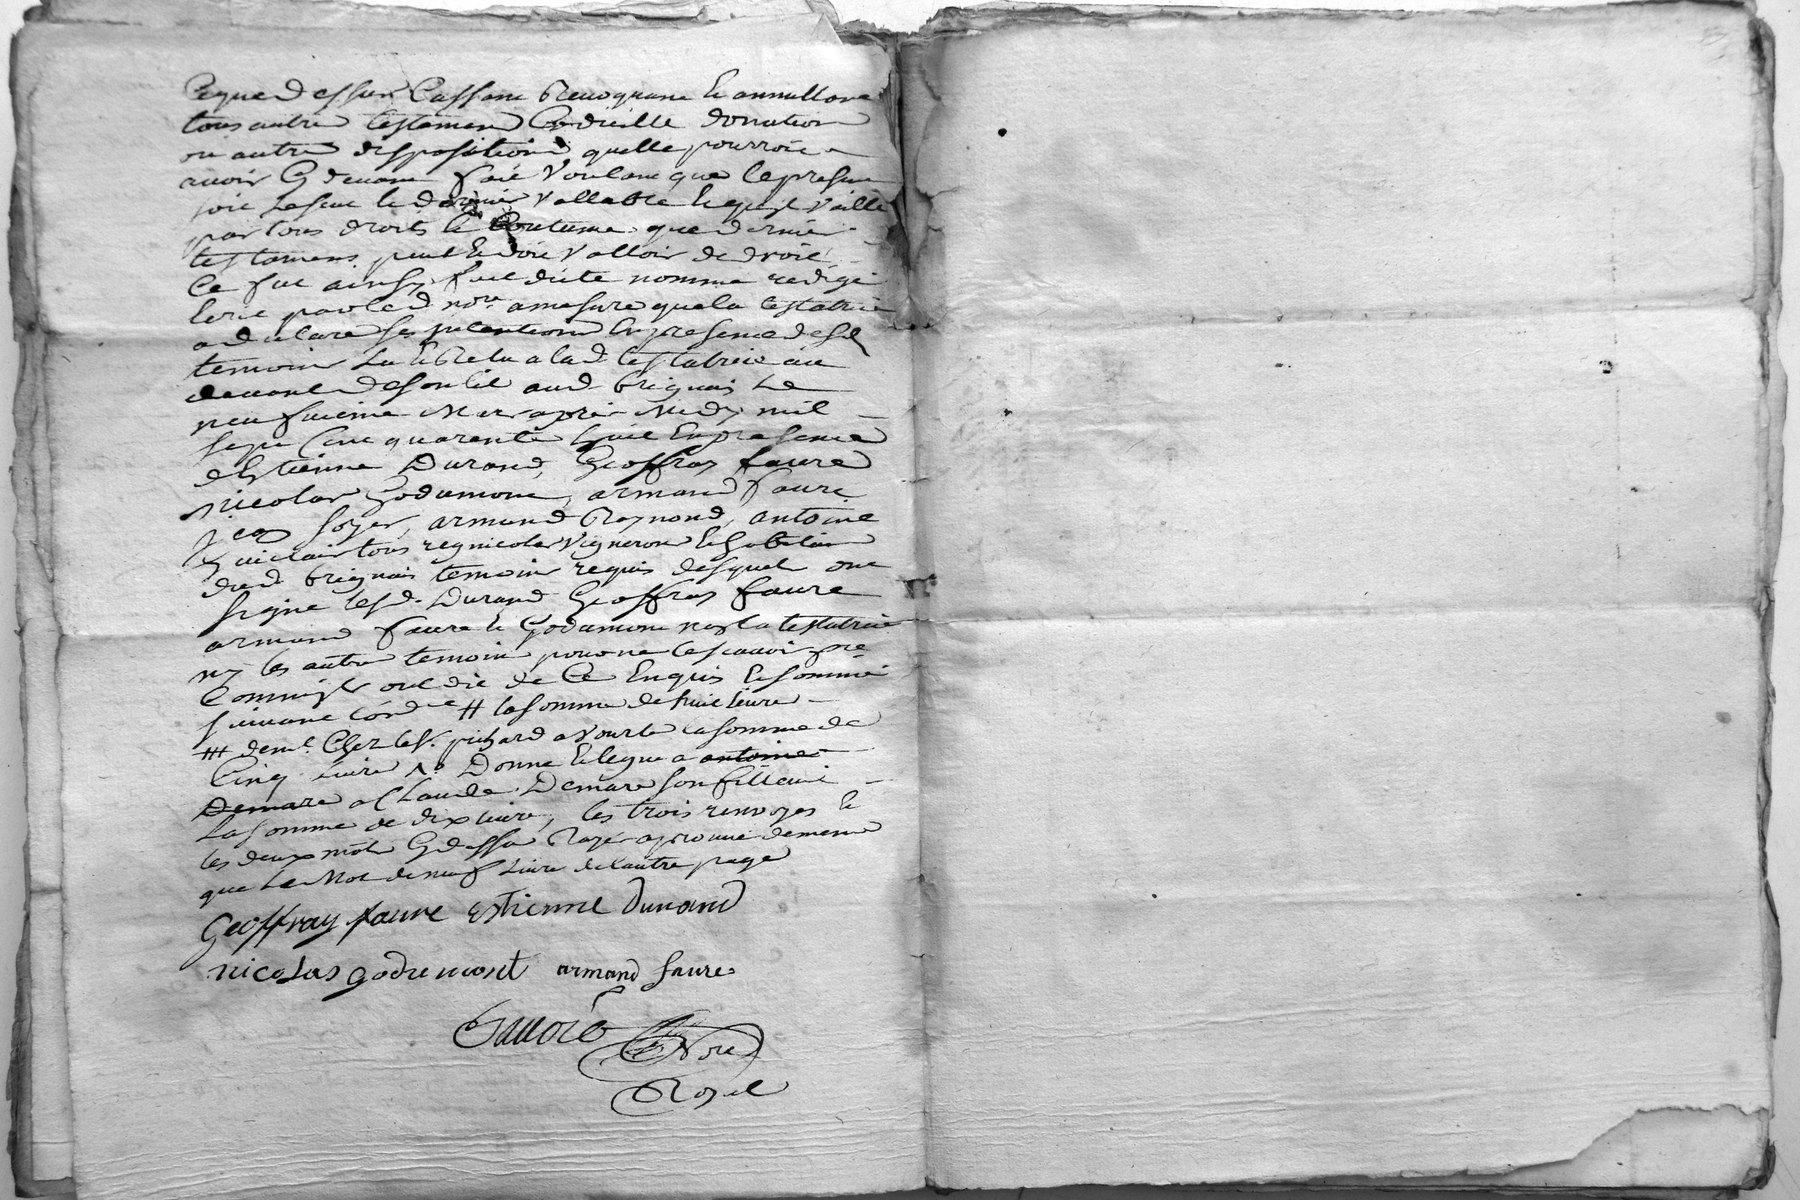 Ce que dessus Cassant Revoquant et annullant
tous autre testament Codicille donnation
ou autre disposition quelle pourroit
avoir Cy devant fait Voulant que le present
soit le seul le dernier Vallable et quil Vaille
par tous droits et Coutume que dernier
testament peut et doit Valloir de droit
Ce fut ainsy fait dicte nommé redigé
Ecrit par led nore amesure que la testatrice
a declaré ses intentions En presence desd
temoins Lu et Relu a lad testatrice au
devant de son lit aud brignais Le
neufvieme Mars apres Midy mil
sept Cent quarente huit En presence
dEstienne Durand, Geoffray faure
nicolas Godumont, armand faure
jean soyer, armand Raynond, antoine
tous regnicoles Vigneron et habitans
dud brignais temoins requis desquels ont
signé lesd. Durand Geoffray faure
armand faure et Godumont non la testatrice
ny les autre temoins pour ne le scavoir fre
Comm'ils ont dit de Ce Enquis et sommé
suivant Lord ce # la somme de huit livre
## dem.t Chez le Sr. pichard a Vourle la somme de
Cinq livre No Donne et legue a antoine
Demare a Claude Demare son filleul
La somme de dix livre, les trois renvoyes et
les deux mots Cy dessus Rayé approuvé de meme
que Le Mot de neuf Livre de lautre page
Geoffray faure estienne Durand
nicolas godumont armand faure
Nore
Royal